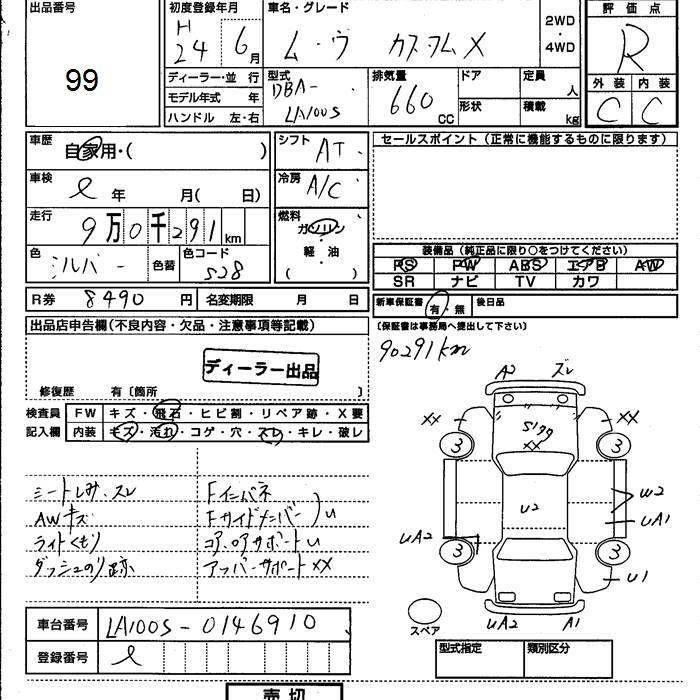 出品番号
99
初度登録年月
H
24 6月
ディーラー・並 行
モデル年式 年
ハンドル 左・右
車名・グレード
ムーヴ カスタムX
2WD
・
4WD
型式
DBA-
LA100S
排気量
660 CC
ドア
形状
定員
人
積載
kg
評価点
R
外装 内装
C C
車歴
自家用・( )
車検
年 月( 日)
走行
9万0千291km
色
シルバー
色替
色コード
S28
R券 8490 円 名変期限 月 日
シフト
AT
冷房
A/C
燃料
ガソリン
軽・油
( )
セールスポイント(正常に機能するものに限ります)
装備品(純正品に限り○をつけてください)
PS PW ABS エアB AW
SR ナビ TV カワ
新車保証書 有・無 後日品
(保証書は事務局へ提出して下さい)
90291km
出品店申告欄(不良内容・欠品・注意事項等記載)
ディーラー出品
修復歴 有〔箇所 〕
検査員 FW キズ・飛石・ヒビ割・リペア跡・X要
記入欄 内装 キズ・汚れ・コゲ・穴・スレ・キレ・破レ
シートしみ、スレ
AWキズ
ライトくもり
ダッシュのり跡
Fインパネ
Fサイドメンバー
U
コア、ロアサポートU
アッパーサポートXX
A2 ズレ
XX XX
XX
3 3
U2
W2
UA1
UA2
3 3
U1
UA2 A1
スペア
車台番号 LA100S-0146910
登録番号
型式指定 類別区分
売切